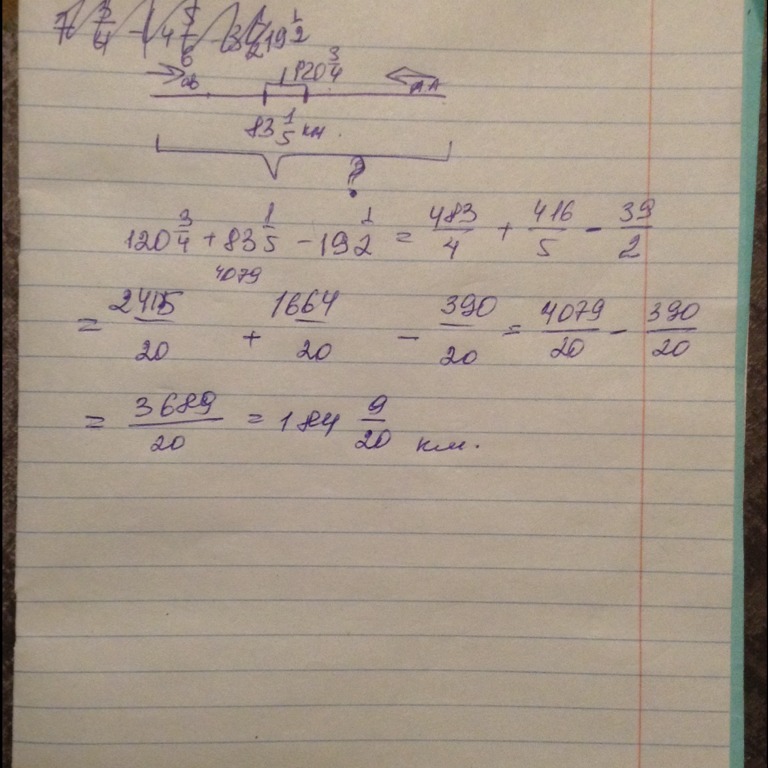 19 1/2
120 3/4
83 1/5 км.
?
120 3/4 + 83 1/5 - 19 1/2 = 483/4 + 416/5 - 39/2
4079
= 2415/20 + 1664/20 - 390/20 = 4079/20 - 390/20
= 3689/20 = 184 9/20 км.